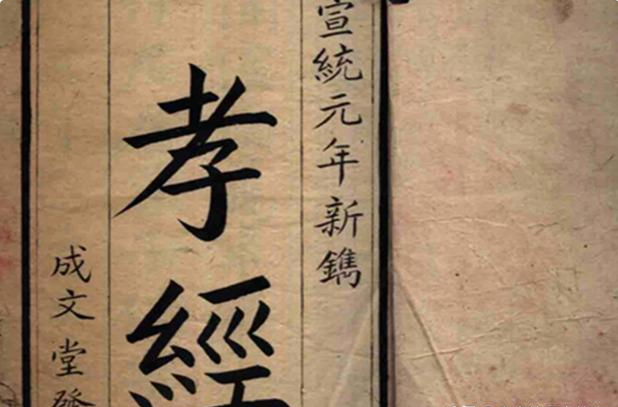 宣統元年新鐫
孝經
成文堂發